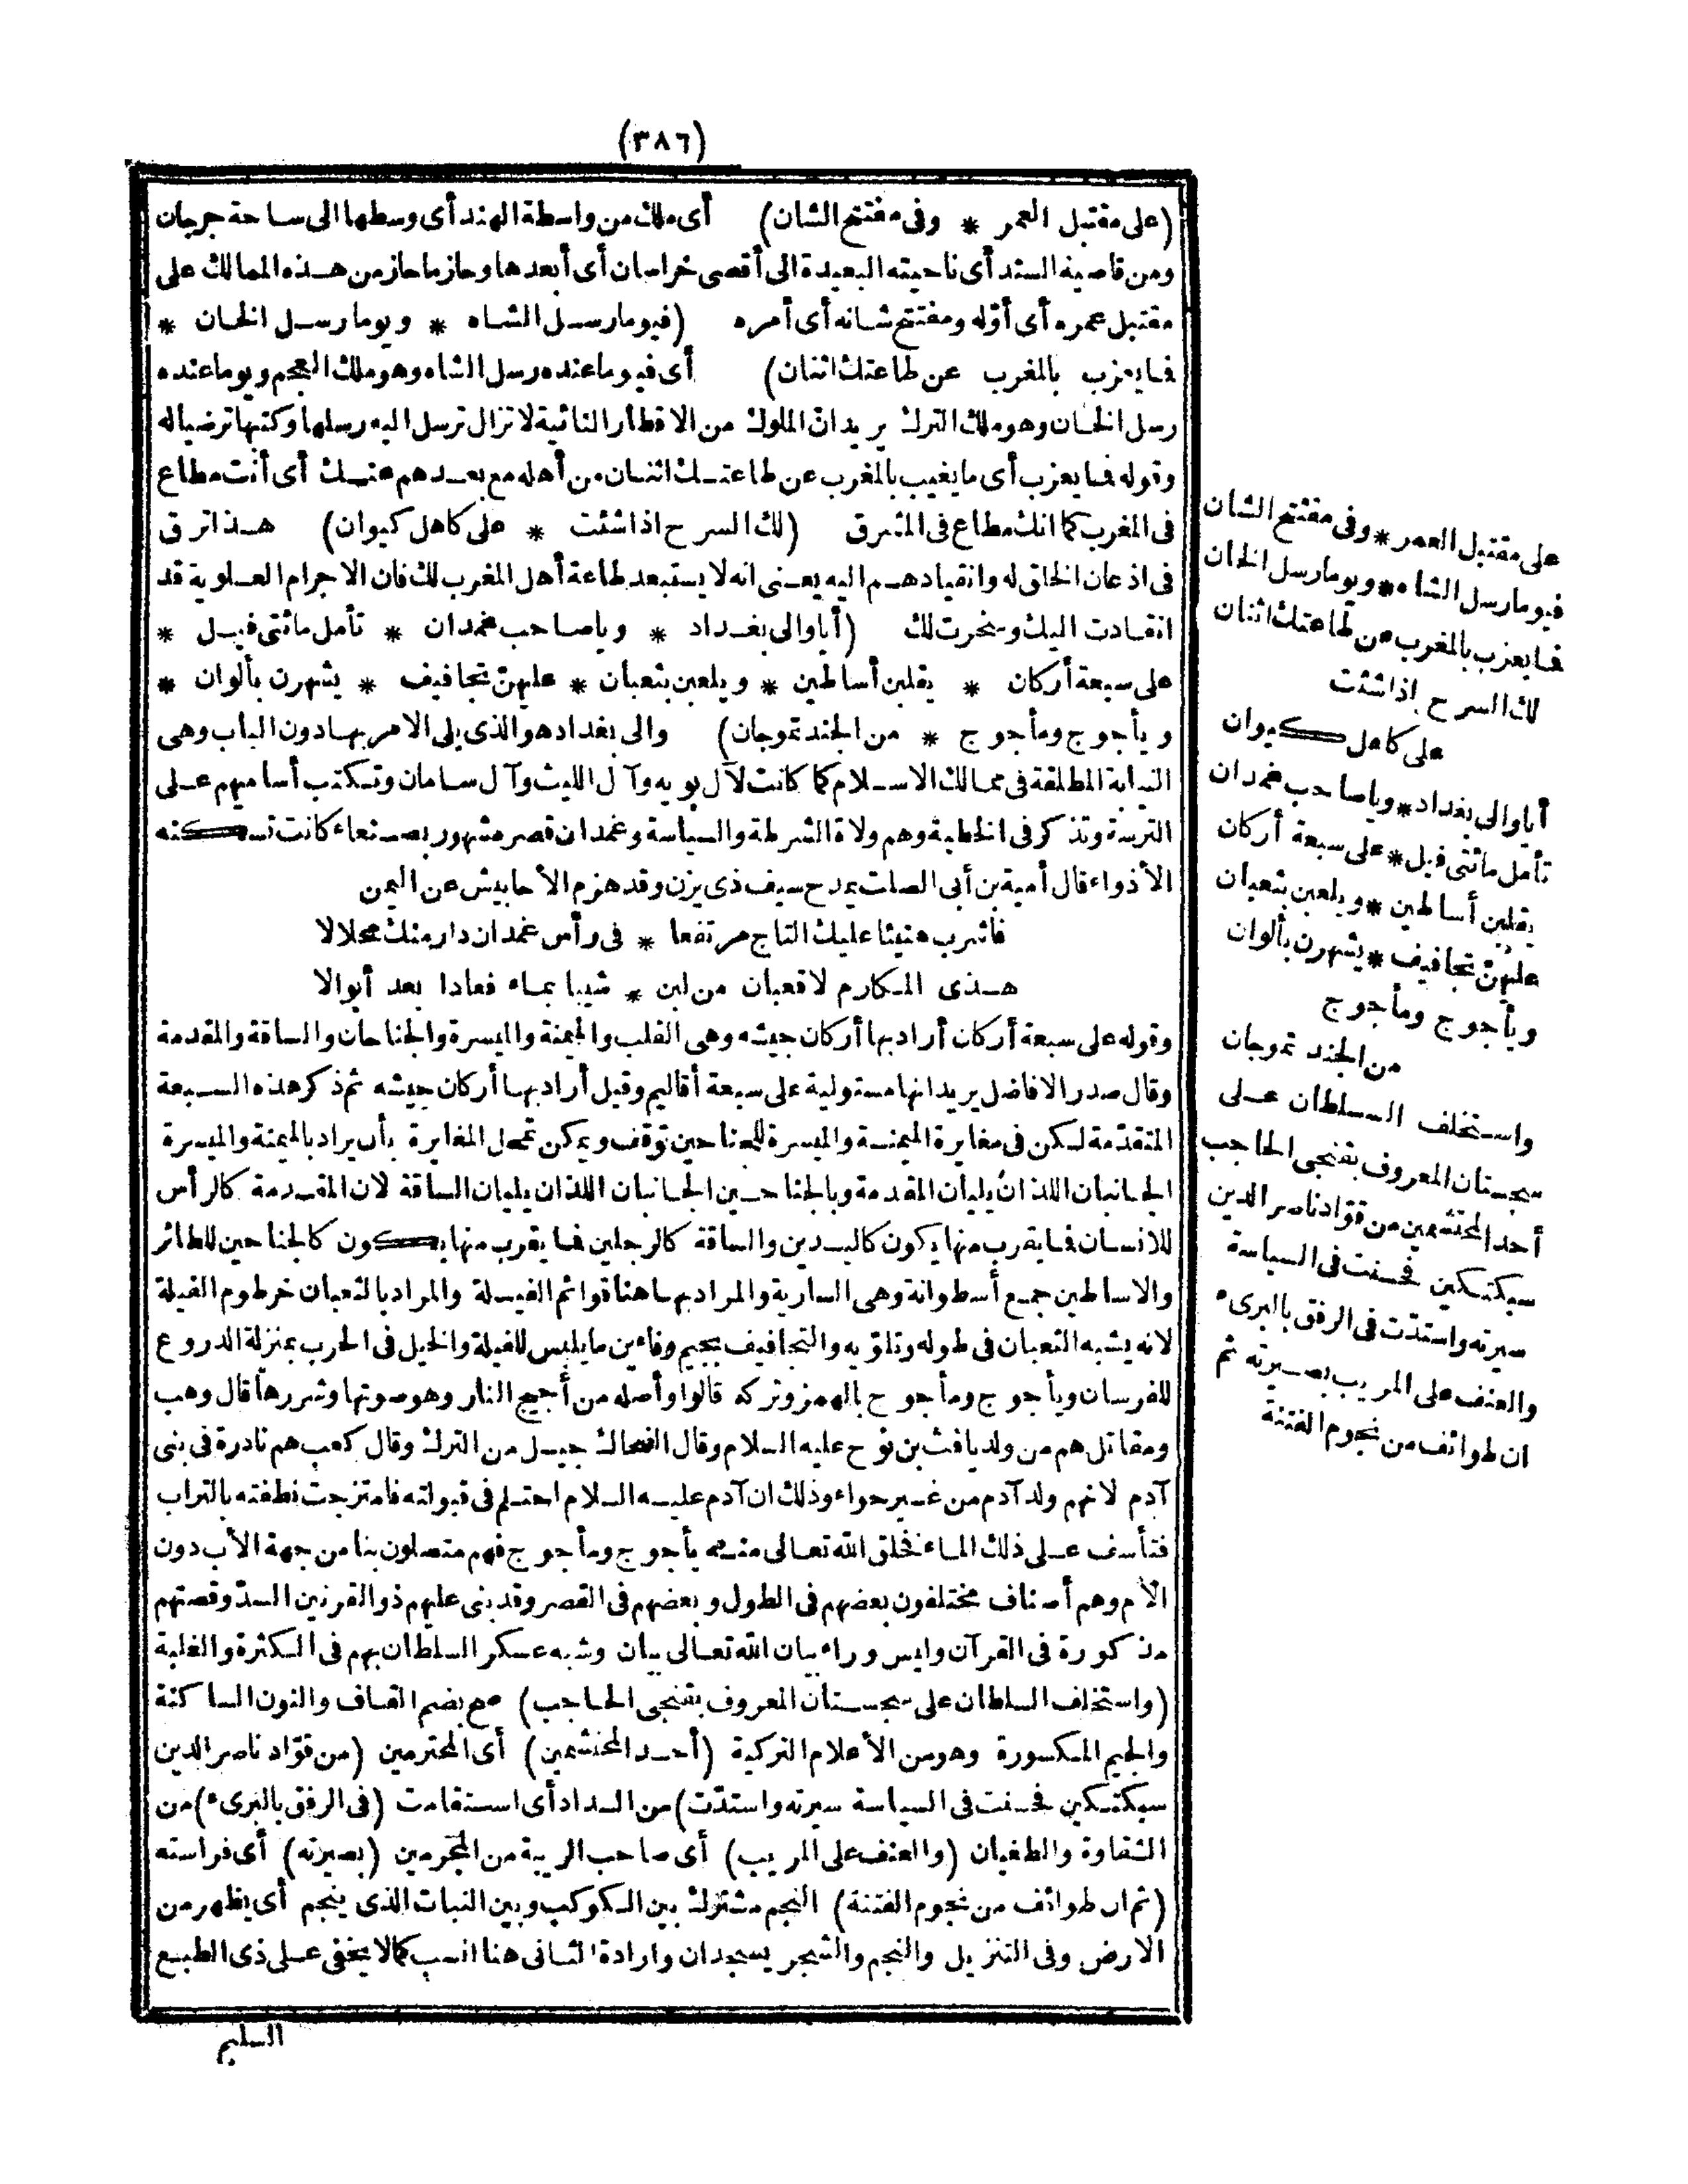 (٣٨٦)
(على مقتبل العمر * وفى مفتتح الشان) أى ملك من واسطة الهند أى وسطها الى ساحة جرجان
ومن قاصية السند أى ناحيته البعيدة الى أقصى خراسان أى أبعدها وحاز ما حاز من هذه الممالك على
مقتبل عمره أى أوّله ومفتتح شانه أى أمره (فيوما رسل الشاه * ويوما رسل الخان *
فما يعزب بالمغرب عن طاعتك اثنان) أى فيوما عنده رسل الشاه وهو ملك العجم ويوما عنده
رسل الخان وهو ملك الترك يريد انّ الملوك من الاقطار النائية لا تزال ترسل اليه رسلها وكتبها ترضيا له
وقوله فما يعزب أى ما يغيب بالمغرب عن طاعتك اثنان من أهله مع بعدهم عنك أى أنت مطاع
فى المغرب كما انك مطاع فى المشرق (لك السرح اذا شئت * على كاهل كيوان) هذا ترق
فى اذعان الخلق له وانقيادهم اليه يعنى انه لا يستبعد طاعة أهل المغرب لك فان الاجرام العلوية قد
انقادت اليك وسخرت لك (أيا والى بغداد * ويا صاحب غمدان * تأمل مائتى فيل *
على سبعة أركان * يقلبن أساطين * ويلعبن بثعبان * عليهنّ تجافيف * يشهرن بألوان *
ويأجوج ومأجوج * من الجند تموجان) والى بغداد هو الذى يلى الامر بها دون الباب وهى
النيابة المطلقة فى ممالك الاسلام كما كانت لآل بويه وآل الليث وآل سامان وتكتب أساميهم على
الترسة وتذكر فى الخطبة وهم ولاة الشرطة والسياسة وغمدان قصر مشهور بصنعاء كانت تسكنه
الأذواء قال أمية بن أبى الصلت يمدح سيف ذى يزن وقد هزم الأحابيش عن اليمن
فاشرب هنيئا عليك التاج مرتفعا * فى رأس غمدان دار منك محلالا
هذى المكارم لا قعبان من لبن * شيبا بماء فعادا بعد أبوالا
وقوله على سبعة أركان أراد بها أركان جيشه وهى القلب والميمنة والميسرة والجناحان والساقة والمقدمة
وقال صدر الافاضل يريد انها مستولية على سبعة أقاليم وقيل أراد بها أركان جيشه ثم ذكر هذه السبعة
المتقدّمة لكن فى مغايرة الميمنة والميسرة للجناحين توقف ويمكن تمحل المغايرة بأن يراد بالميمنة والميسرة
الجانبان اللذان يليان المقدمة وبالجناحين الجانبان اللذان يليان الساقة لان المقدمة كالرأس
للانسان فما يقرب منها يكون كاليدين والساقة كالرجلين فما يقرب منها يكون كالجناحين للطائر
والاساطين جمع أسطوانة وهى السارية والمراد بها هنا قوائم الفيلة والمراد بالثعبان خرطوم الفيلة
لانه يشبه الثعبان فى طوله وتلوّيه والتجافيف بجيم وفاءين ما يلبس للفيلة والخيل فى الحرب بمنزلة الدروع
للفرسان ويأجوج ومأجوج بالهمز وتركه قالوا وأصله من أجيج النار وهو صوتها وشررها قال وهب
ومقاتل هم من ولد يافث بن نوح عليه السلام وقال الضحاك جيل من الترك وقال كعب هم نادرة فى بنى
آدم لانهم ولد آدم من غير حواء وذلك ان آدم عليه السلام احتلم فى قبولته فامتزجت نطفته بالتراب
فتأسف على ذلك الماء فخلق الله تعالى منه يأجوج ومأجوج فهم متصلون بنا من جهة الأب دون
الأم وهم أصناف مختلفون بعضهم فى الطول وبعضهم فى القصر وقد بنى عليهم ذو القرنين السدّ وقصتهم
مذكورة فى القرآن وليس وراء بيان الله تعالى بيان وشبه عسكر السلطان بهم فى الكثرة والغلبة
(واستخلف السلطان على سجستان المعروف بقنجى الحاجب) صح بضم القاف والنون الساكنة
والجيم المكسورة وهو من الأعلام التركية (أحد المحتشمين) أى المحترمين (من قوّاد ناصر الدين
سبكتكين فحسنت فى السياسة سيرته واستدّت) من السداد أى استقامت (فى الرفق بالبرىء) من
الشقاوة والطغيان (والعنف على المريب) أى صاحب الريبة من المجرمين (بصيرته) أى فراسته
(ثم ان طوائف من نجوم الفتنة) النجم مشترك بين الكوكب وبين النبات الذى ينجم أى يظهر من
الارض وفى التنزيل والنجم والشجر يسجدان وارادة الثانى هنا انسب كما لا يخفى على ذى الطبع
السليم
على مقتبل العمر * وفى مفتتح الشان
فيوما رسل الشاه * ويوما رسل الخان
فما يعزب بالمغرب عن طاعتك اثنان
لك السرح اذا شئت
على كاهل كيوان
أيا والى بغداد * ويا صاحب غمدان
تأمل مائتى فيل * على سبعة أركان
يقلبن أساطين * ويلعبن بثعبان
عليهنّ تجافيف * يشهرن بألوان
ويأجوج ومأجوج
من الجند تموجان
واستخلف السلطان على
سجستان المعروف بقنجى الحاجب
أحد المحتشمين من قوّاد ناصر الدين
سبكتكين فحسنت فى السياسة
سيرته واستدّت فى الرفق بالبرىء
والعنف على المريب بصيرته ثم
ان طوائف من نجوم الفتنة